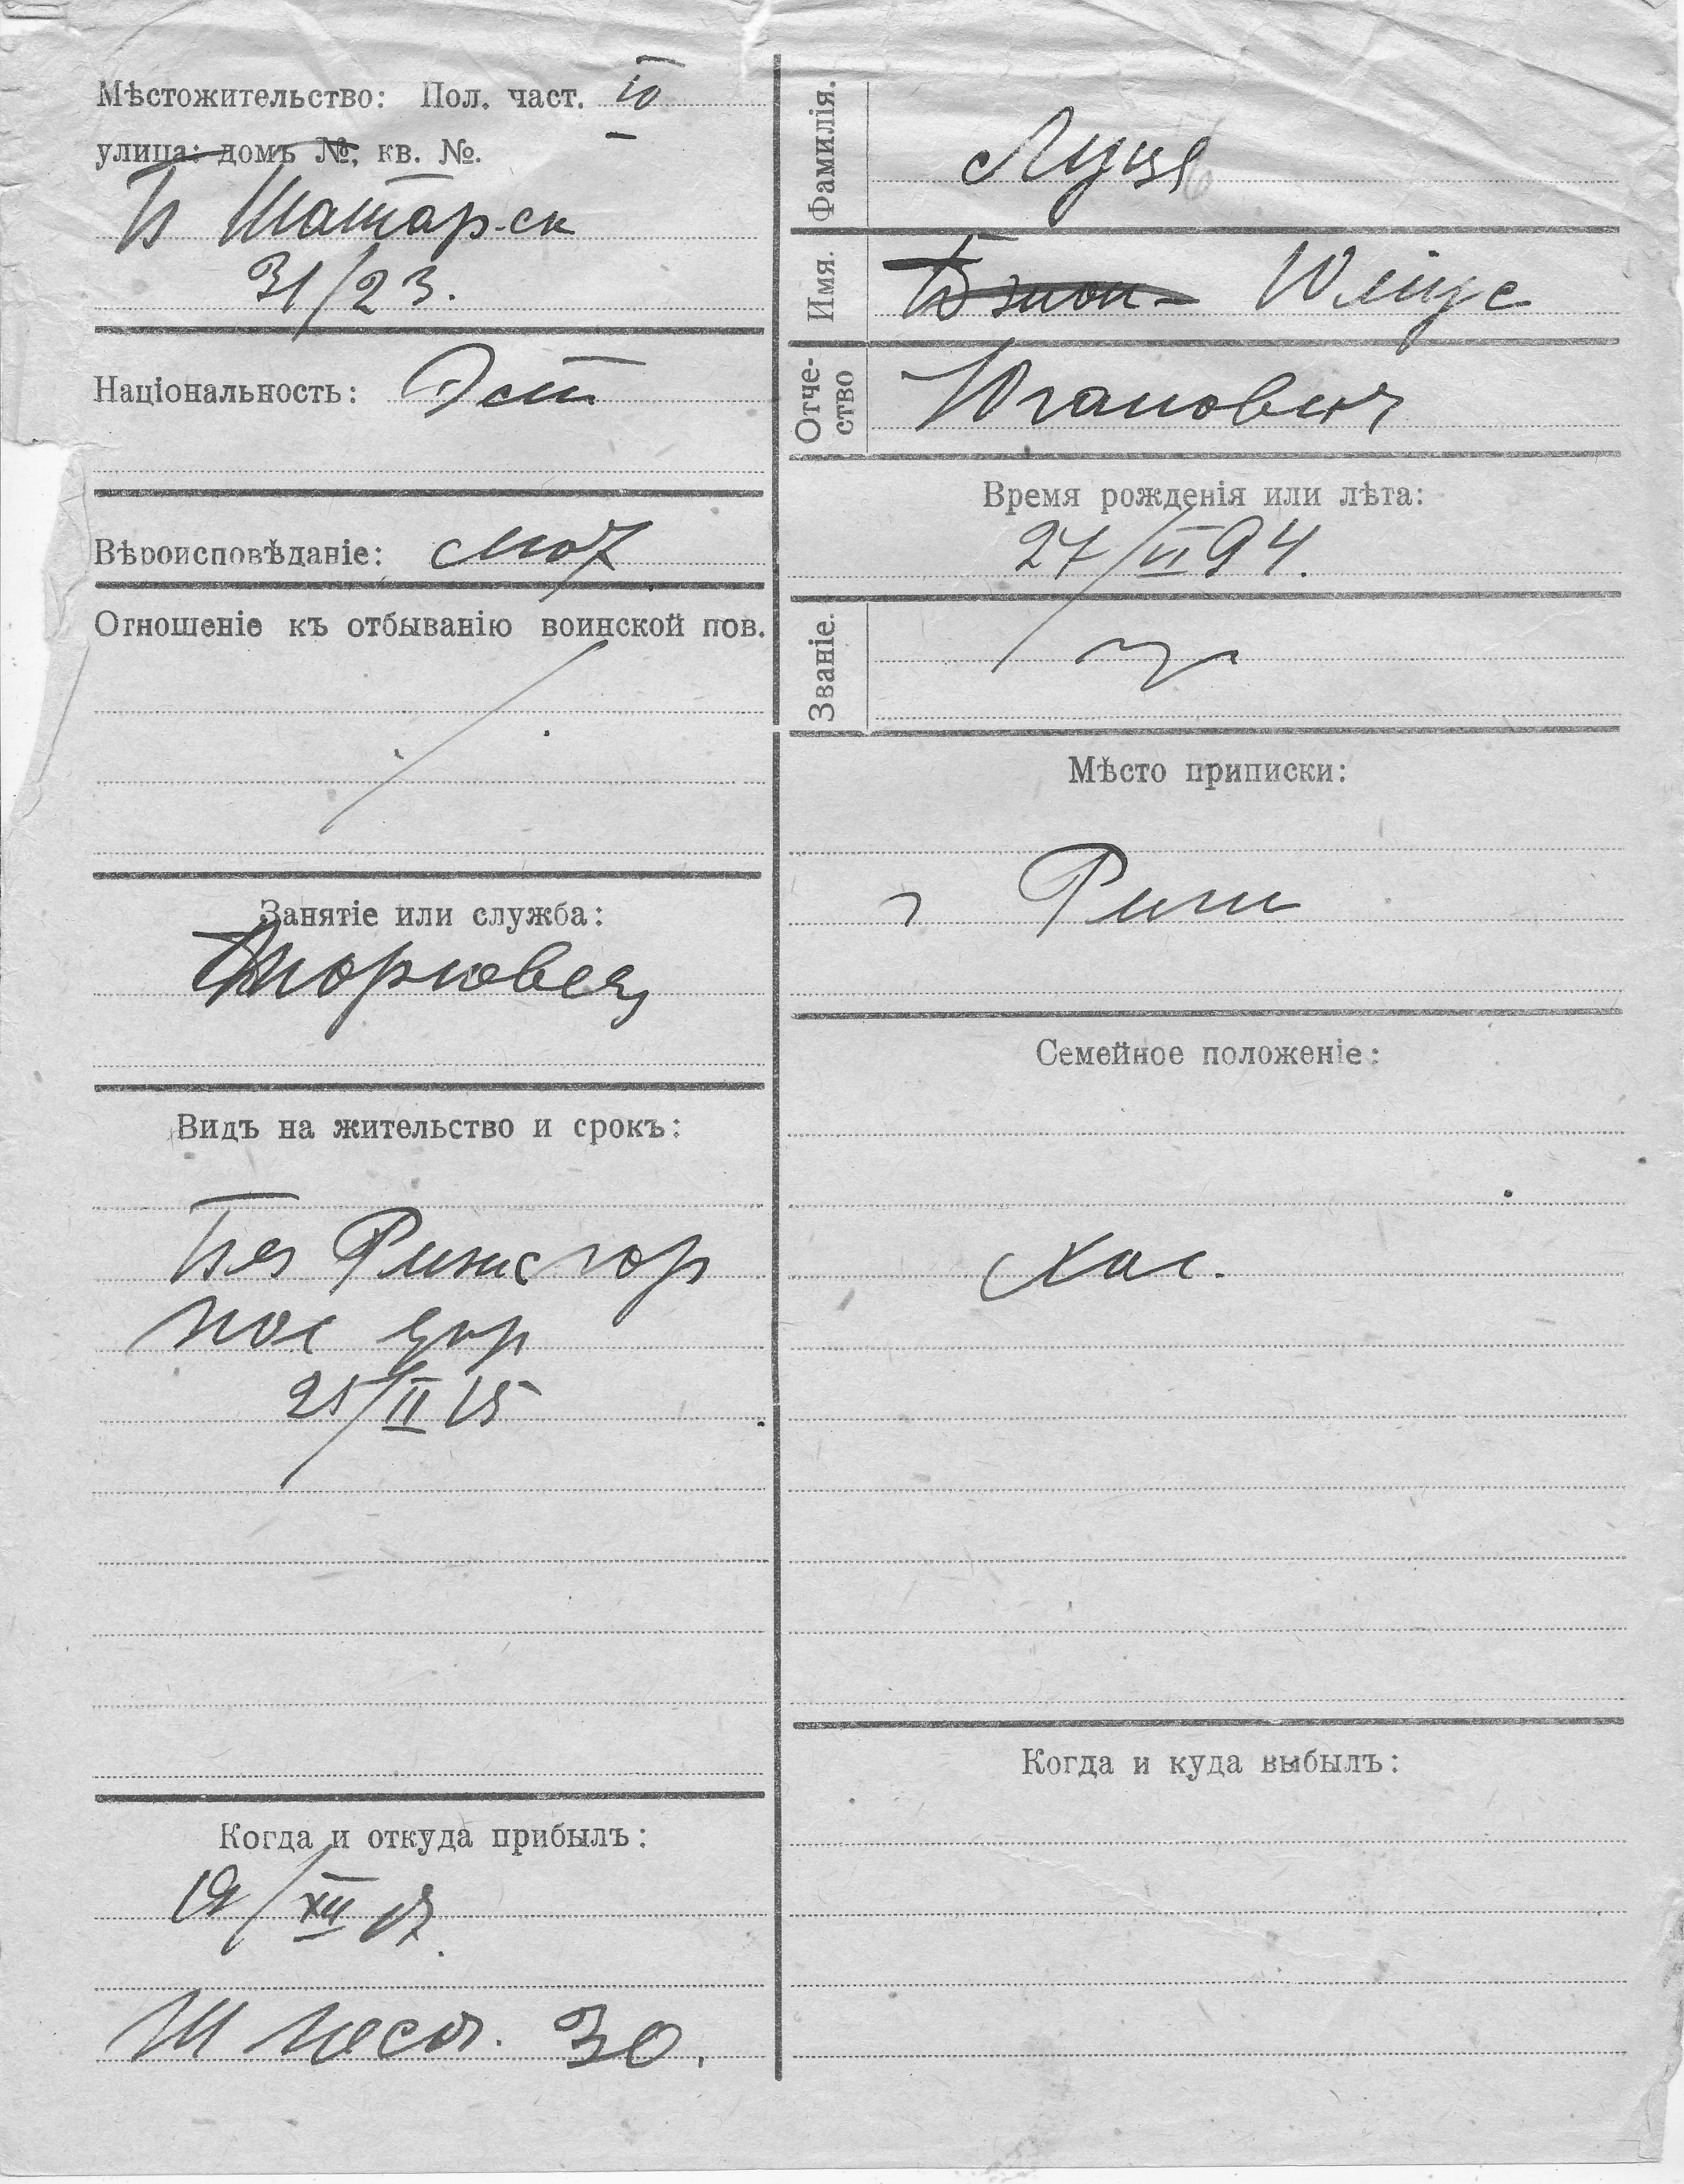 Мѣстожительство: Пол. част. IV
улица: домъ №, кв. №.
Б Татарск
31/23.
Національность: Эст
Вѣроисповѣданіе: Лют
Отношеніе къ отбыванію воинской пов.
Занятіе или служба:
Торговец
Видъ на жительство и срокъ:
Без Рижс гор
пос упр
25/II 15
Когда и откуда прибылъ:
19/XII 17.
30.
Фамилія. Луця
Имя. Юліус
Отче-
ство Юганович
Время рожденія или лѣта:
27/VI 94.
Званіе.
Мѣсто приписки:
г Риги
Семейное положеніе:
Хол.
Когда и куда выбылъ: